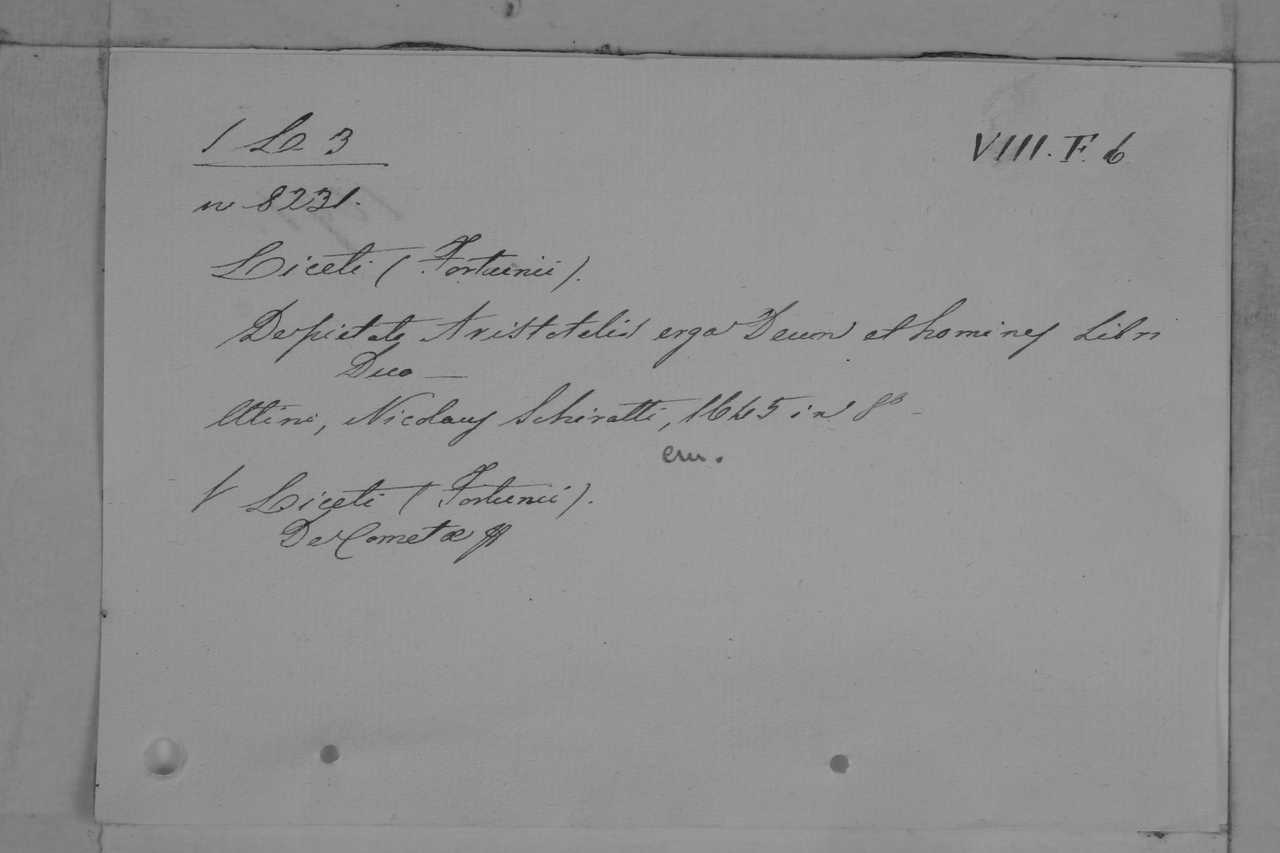 1 L 3
VIII. F. 6
n 8231.
Liceti (Fortunii).
De pietate Aristotelis erga Deum et homines Libri
Duo —
Utini, Nicolaus Schiratti, 1645 in 8º
V Liceti (Fortunii).
De Cometæ